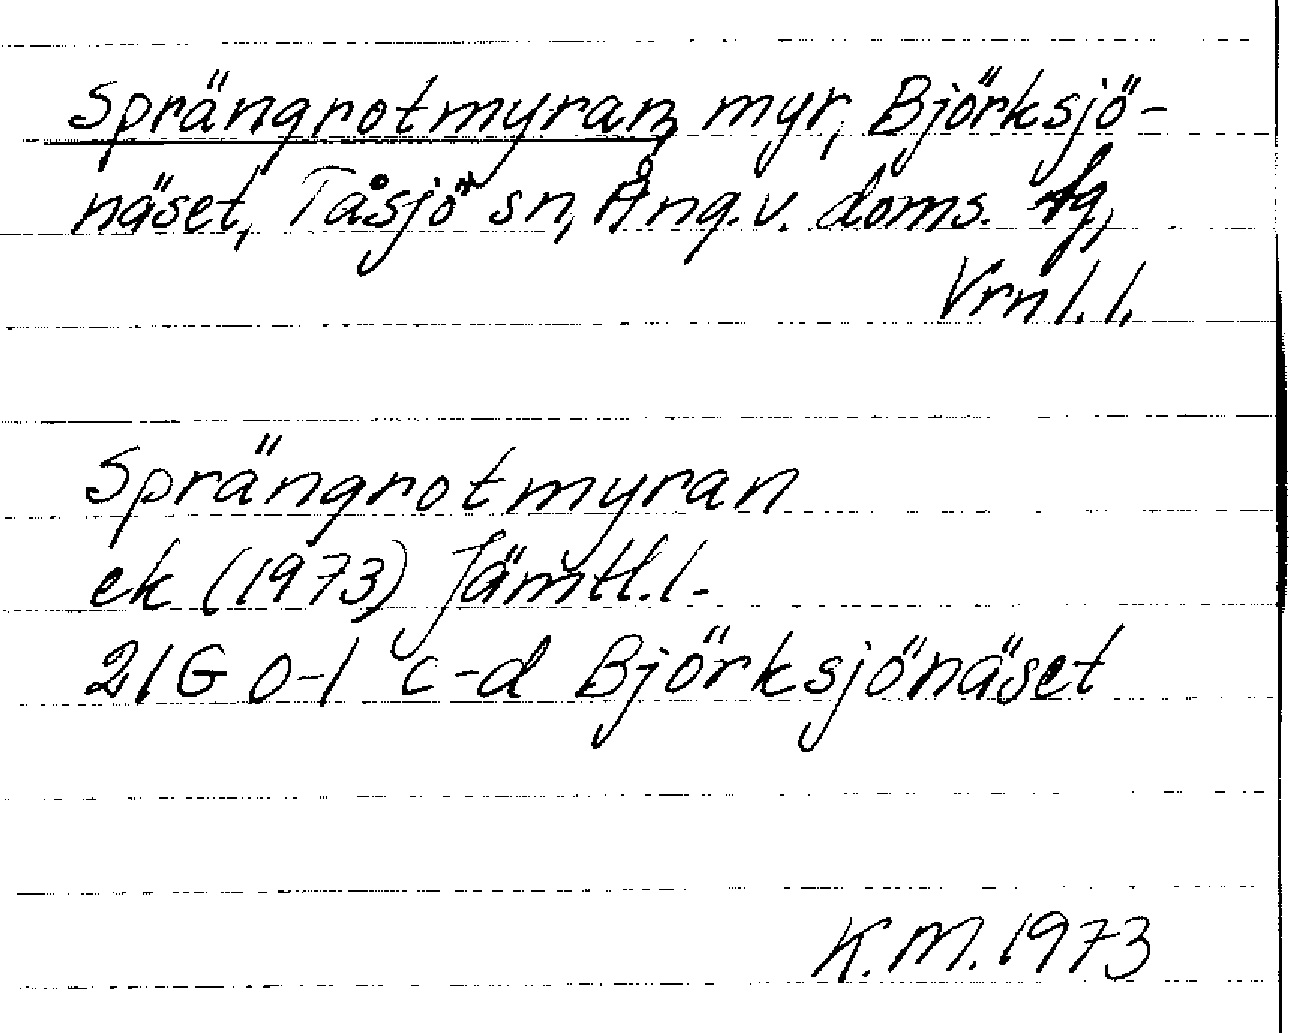 Sprängrotmyran, myr, Björksjö-
näset, Tåsjö sn, Ång.v. doms. tg,
Vrnl.l.
Sprängrotmyran
ek (1973) Jämtl.l.
21G 0-1 c-d Björksjönäset
K.M. 1973